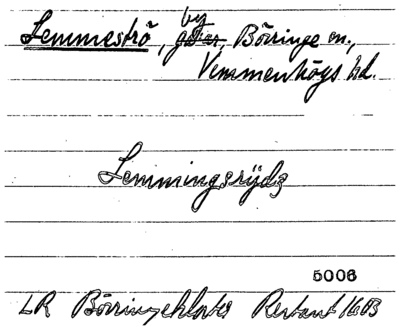 Lemmeströ, by, Börringe sn.,
Vemmenhögs hd.
Lemmingsrijdz
5006
LR Börringekloster 1603